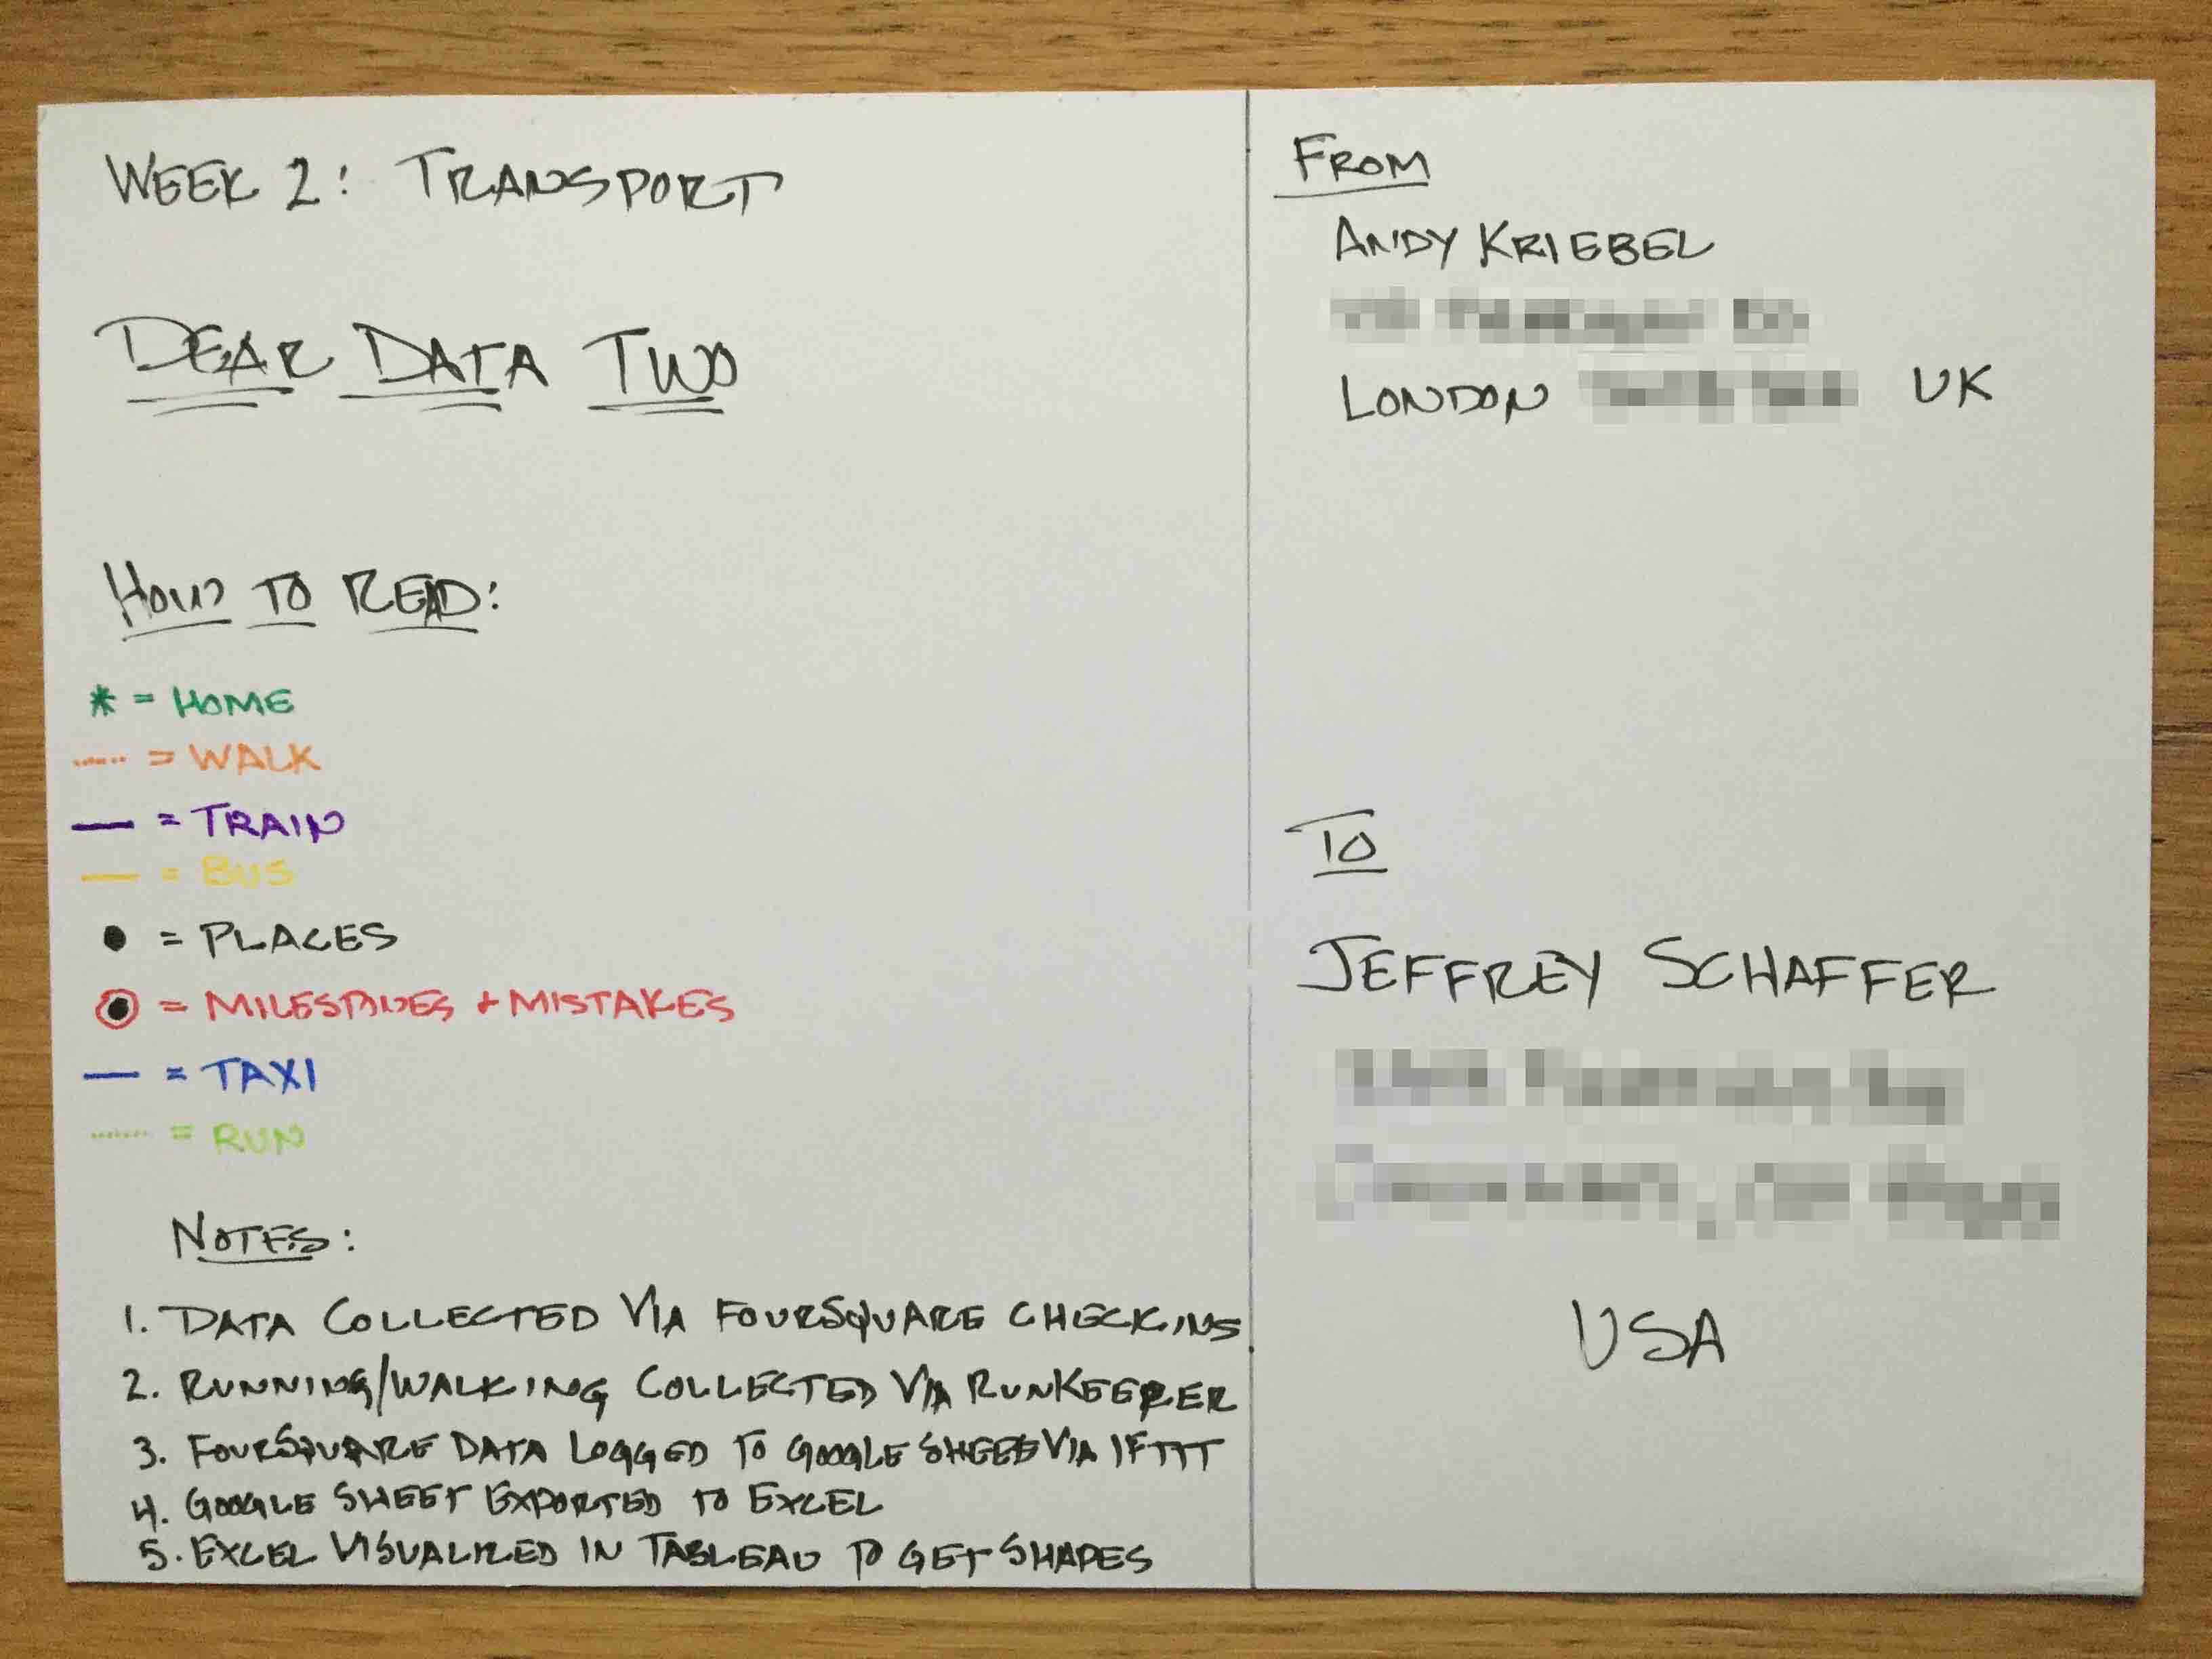 WEEK 2: TRANSPORT
DEAR DATA TWO
HOW TO READ:
* = HOME
= WALK
= TRAIN
= BUS
= PLACES
= MILESTONES + MISTAKES
= TAXI
= RUN
NOTES:
1. DATA COLLECTED VIA FOURSQUARE CHECKINS
2. RUNNING/WALKING COLLECTED VIA RUNKEEPER
3. FOURSQUARE DATA LOGGED TO GOOGLE SHEETS VIA IFTTT
4. GOOGLE SHEET EXPORTED TO EXCEL
5. EXCEL VISUALIZED IN TABLEAU TO GET SHAPES
FROM
ANDY KRIEBEL
LONDON UK
TO
JEFFREY SCHAFFER
USA